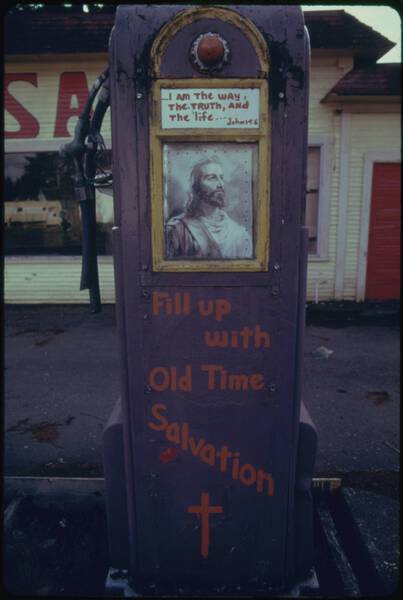 SA
I AM the WAY,
The TRUTH, AND
the life...
Fill up
with
Old Time
Salvation